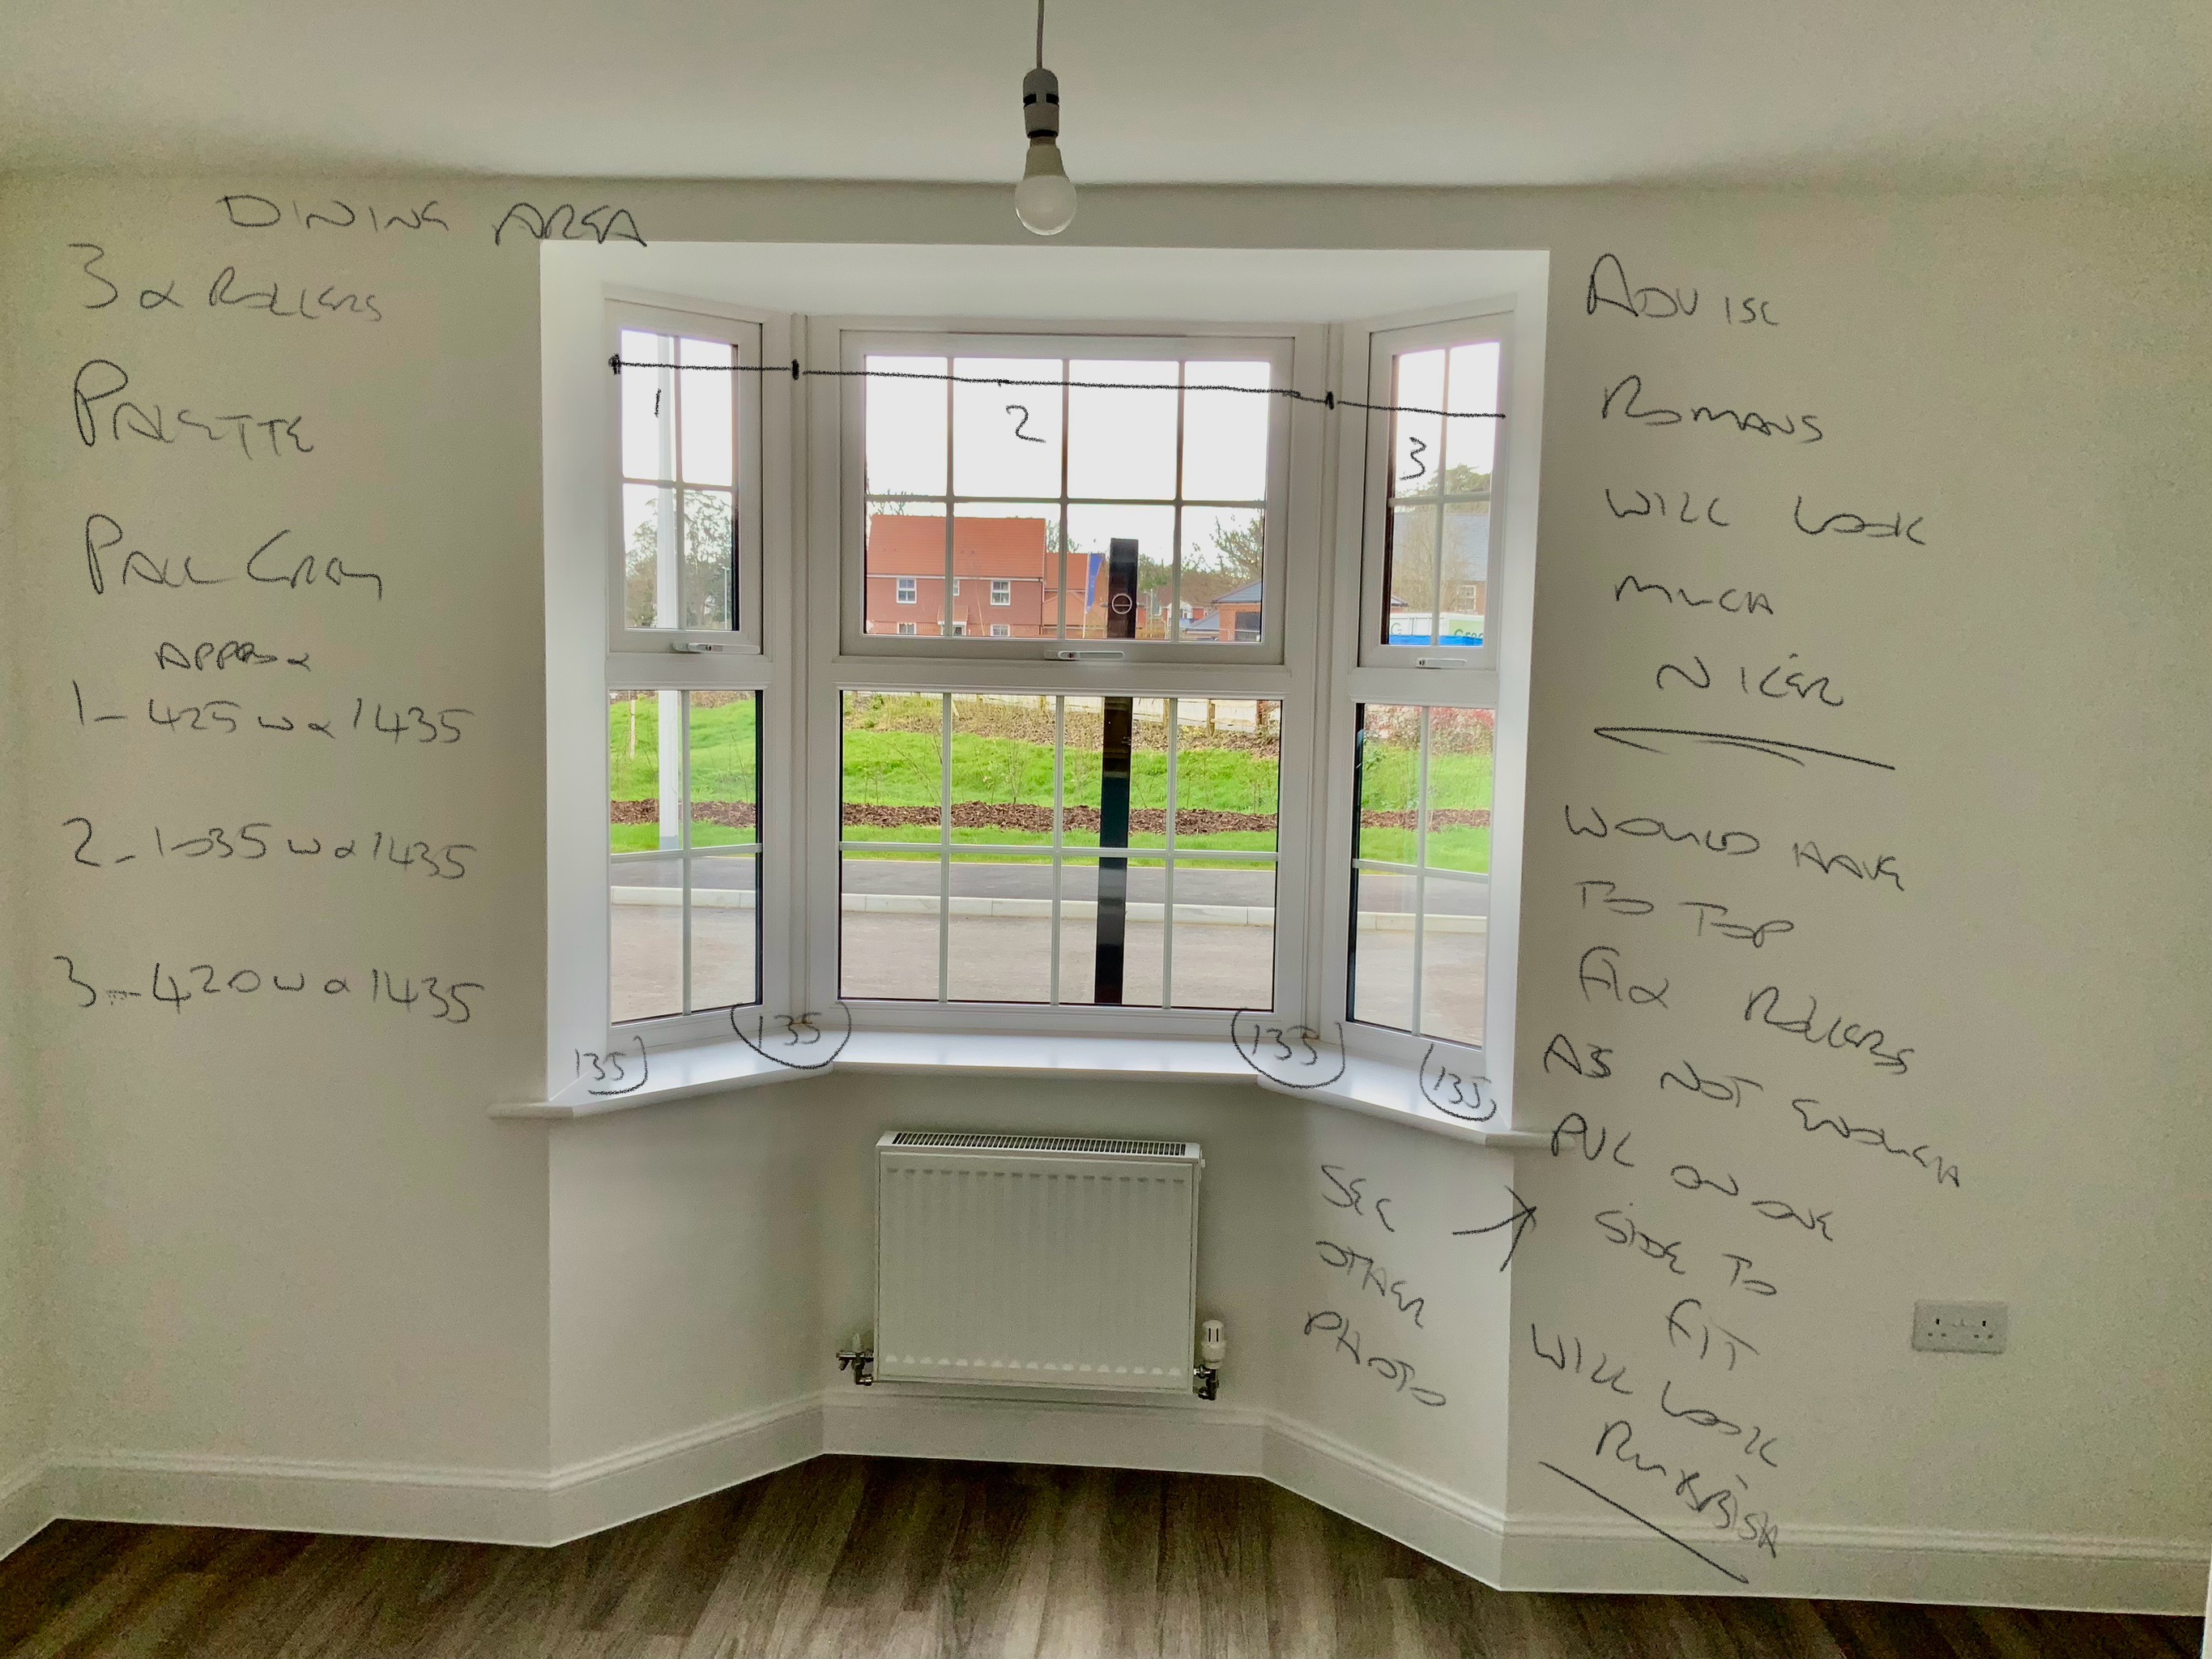 DINING AREA
3 x ROLLERS
PALETTE
PALE GRAY
APPROX
1 - 425 W x 1435
2 - 1035 W x 1435
3 - 420 W x 1435
1
2
3
135
135
135
135
ADVISE
ROMANS
WILL LOOK
MUCH
NICER
WOULD HAVE
TO TOP
FIX ROLLERS
AS NOT ENOUGH
PVC ON ONE
SIDE TO
FIT
WILL LOOK
RUBBISH
SEE
OTHER
PHOTO